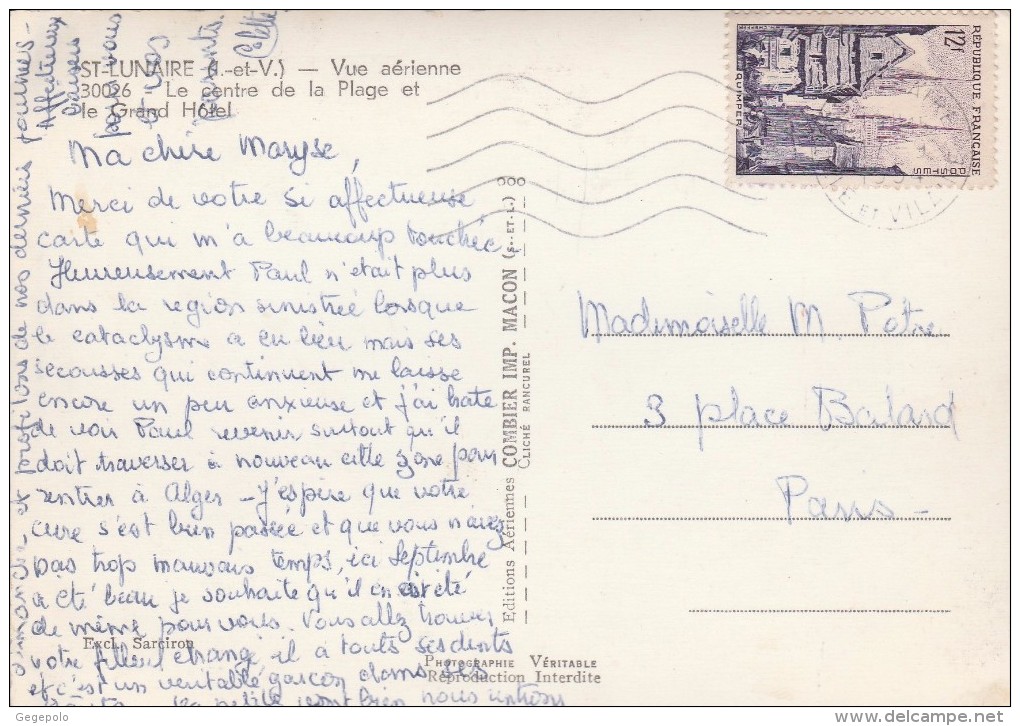 ST-LUNAIRE (I.-et-V.) — Vue aérienne
30026 - Le centre de la Plage et
le Grand Hôtel
Ma chère Maryse,
Merci de votre si affectueuse
carte qui m'a beaucoup touchée.
Heureusement Paul n'était plus
dans la region sinistrée lorsque
le cataclysme a eu lieu mais ses
secousses qui continuent me laisse
encore un peu anxieuse et j'ai hate
de voir Paul revenir surtout qu'il
doit traverser à nouveau cette zone pour
rentrer à Alger - J'espère que votre
cure s'est bien passée et que vous n'avez
pas trop mauvais temps, ici Septembre
a été beau je souhaite qu'il en ait été
de même pour vous. Vous allez trouver
votre filleul changé, il a toutes ses dents
et c'est un veritable garçon dans ses
bien nous rentrons
dimanche, et profitons de nos dernières journées -
Affectueux
baisers
pour vous
et vos
parents.
Colette
Excl. Sarciron
PHOTOGRAPHIE VÉRITABLE
Reproduction Interdite
Editions Aériennes COMBIER IMP. MACON (S.-ET-L.)
CLICHÉ RANCUREL
RÉPUBLIQUE FRANÇAISE
12f
POSTES
QUIMPER
ILLE ET VILAINE
Mademoiselle M Patre
3 place Balard
Paris -
Gegepolo
delcampe.net